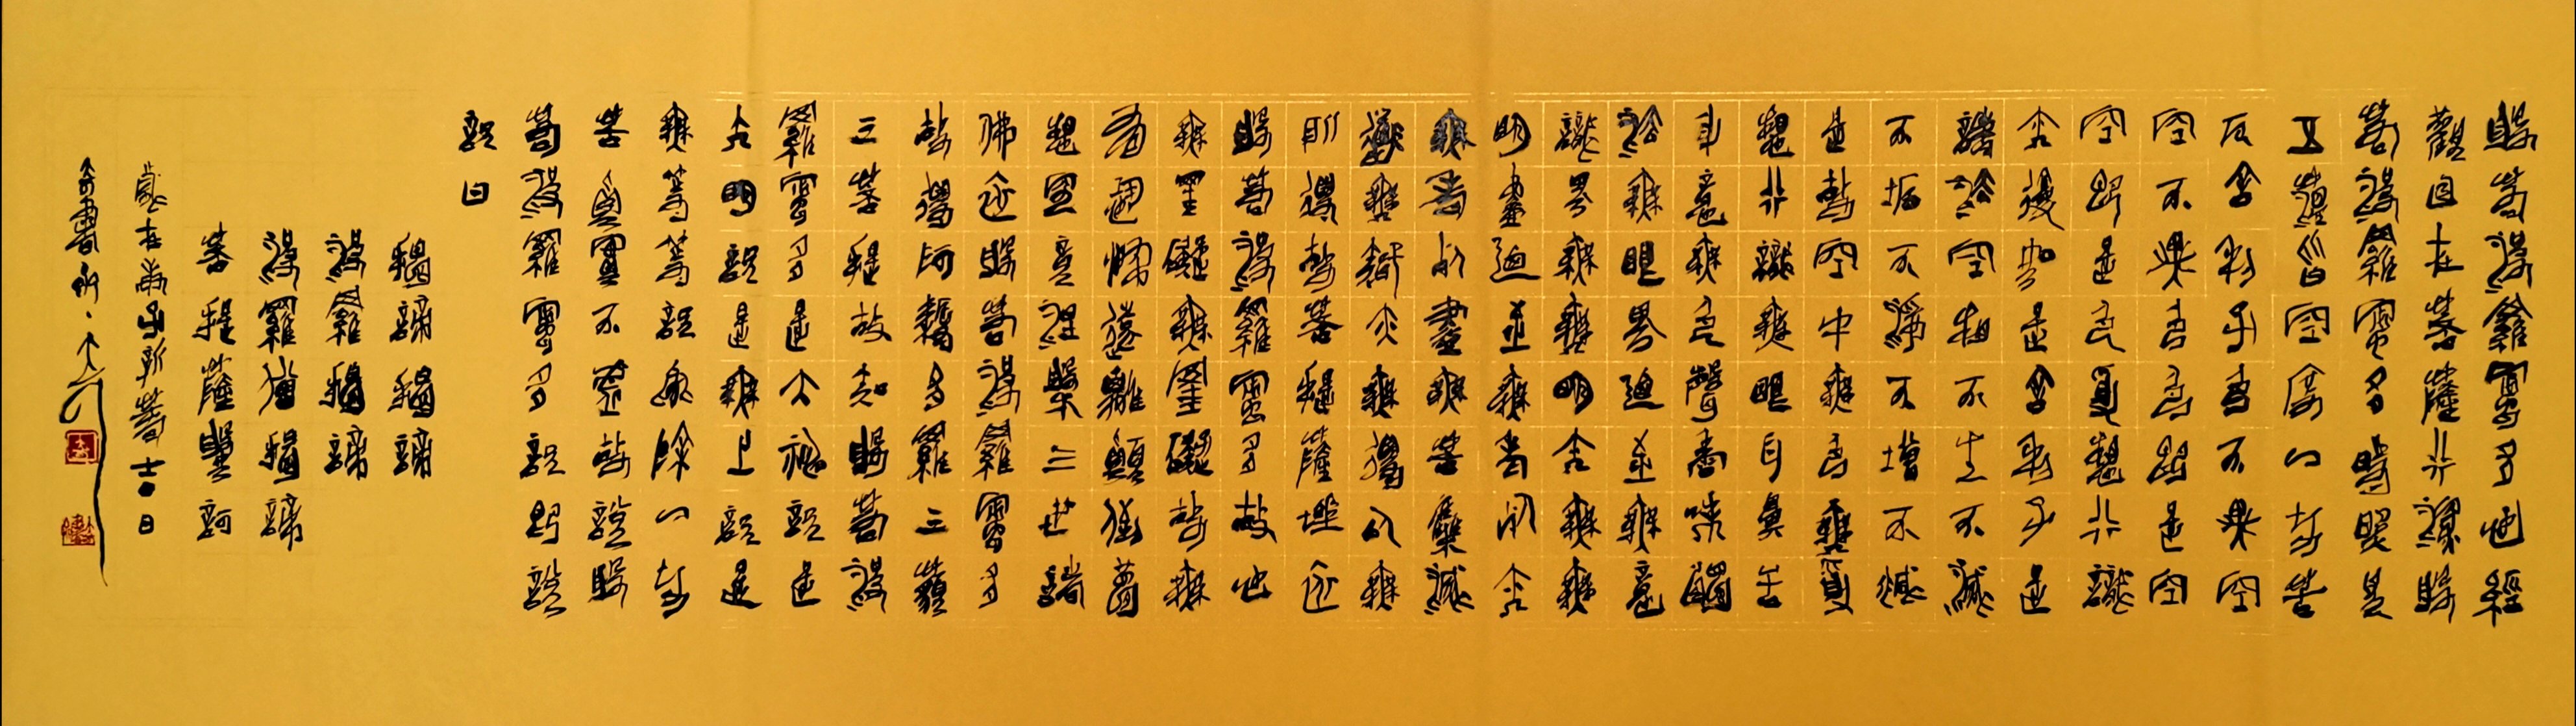 般若波羅蜜多心經
觀自在菩薩行深般
若波羅蜜多時照見
五蘊皆空度一切苦
厄舍利子色不異空
空不異色色即是空
空即是色受想行識
亦復如是舍利子是
諸法空相不生不滅
不垢不淨不增不減
是故空中無色無受
想行識無眼耳鼻舌
身意無色聲香味觸
法無眼界乃至無意
識界無無明亦無無
明盡乃至無老死亦
無老死盡無苦集滅
道無智亦無得以無
所得故菩提薩埵依
般若波羅蜜多故心
無罣礙無罣礙故無
有恐怖遠離顛倒夢
想究竟涅槃三世諸
佛依般若波羅蜜多
故得阿耨多羅三藐
三菩提故知般若波
羅蜜多是大神咒是
大明咒是無上咒是
無等等咒能除一切
苦真實不虛故說般
若波羅蜜多咒即說
咒曰
揭諦揭諦
波羅揭諦
波羅僧揭諦
菩提薩婆訶
歲在 日